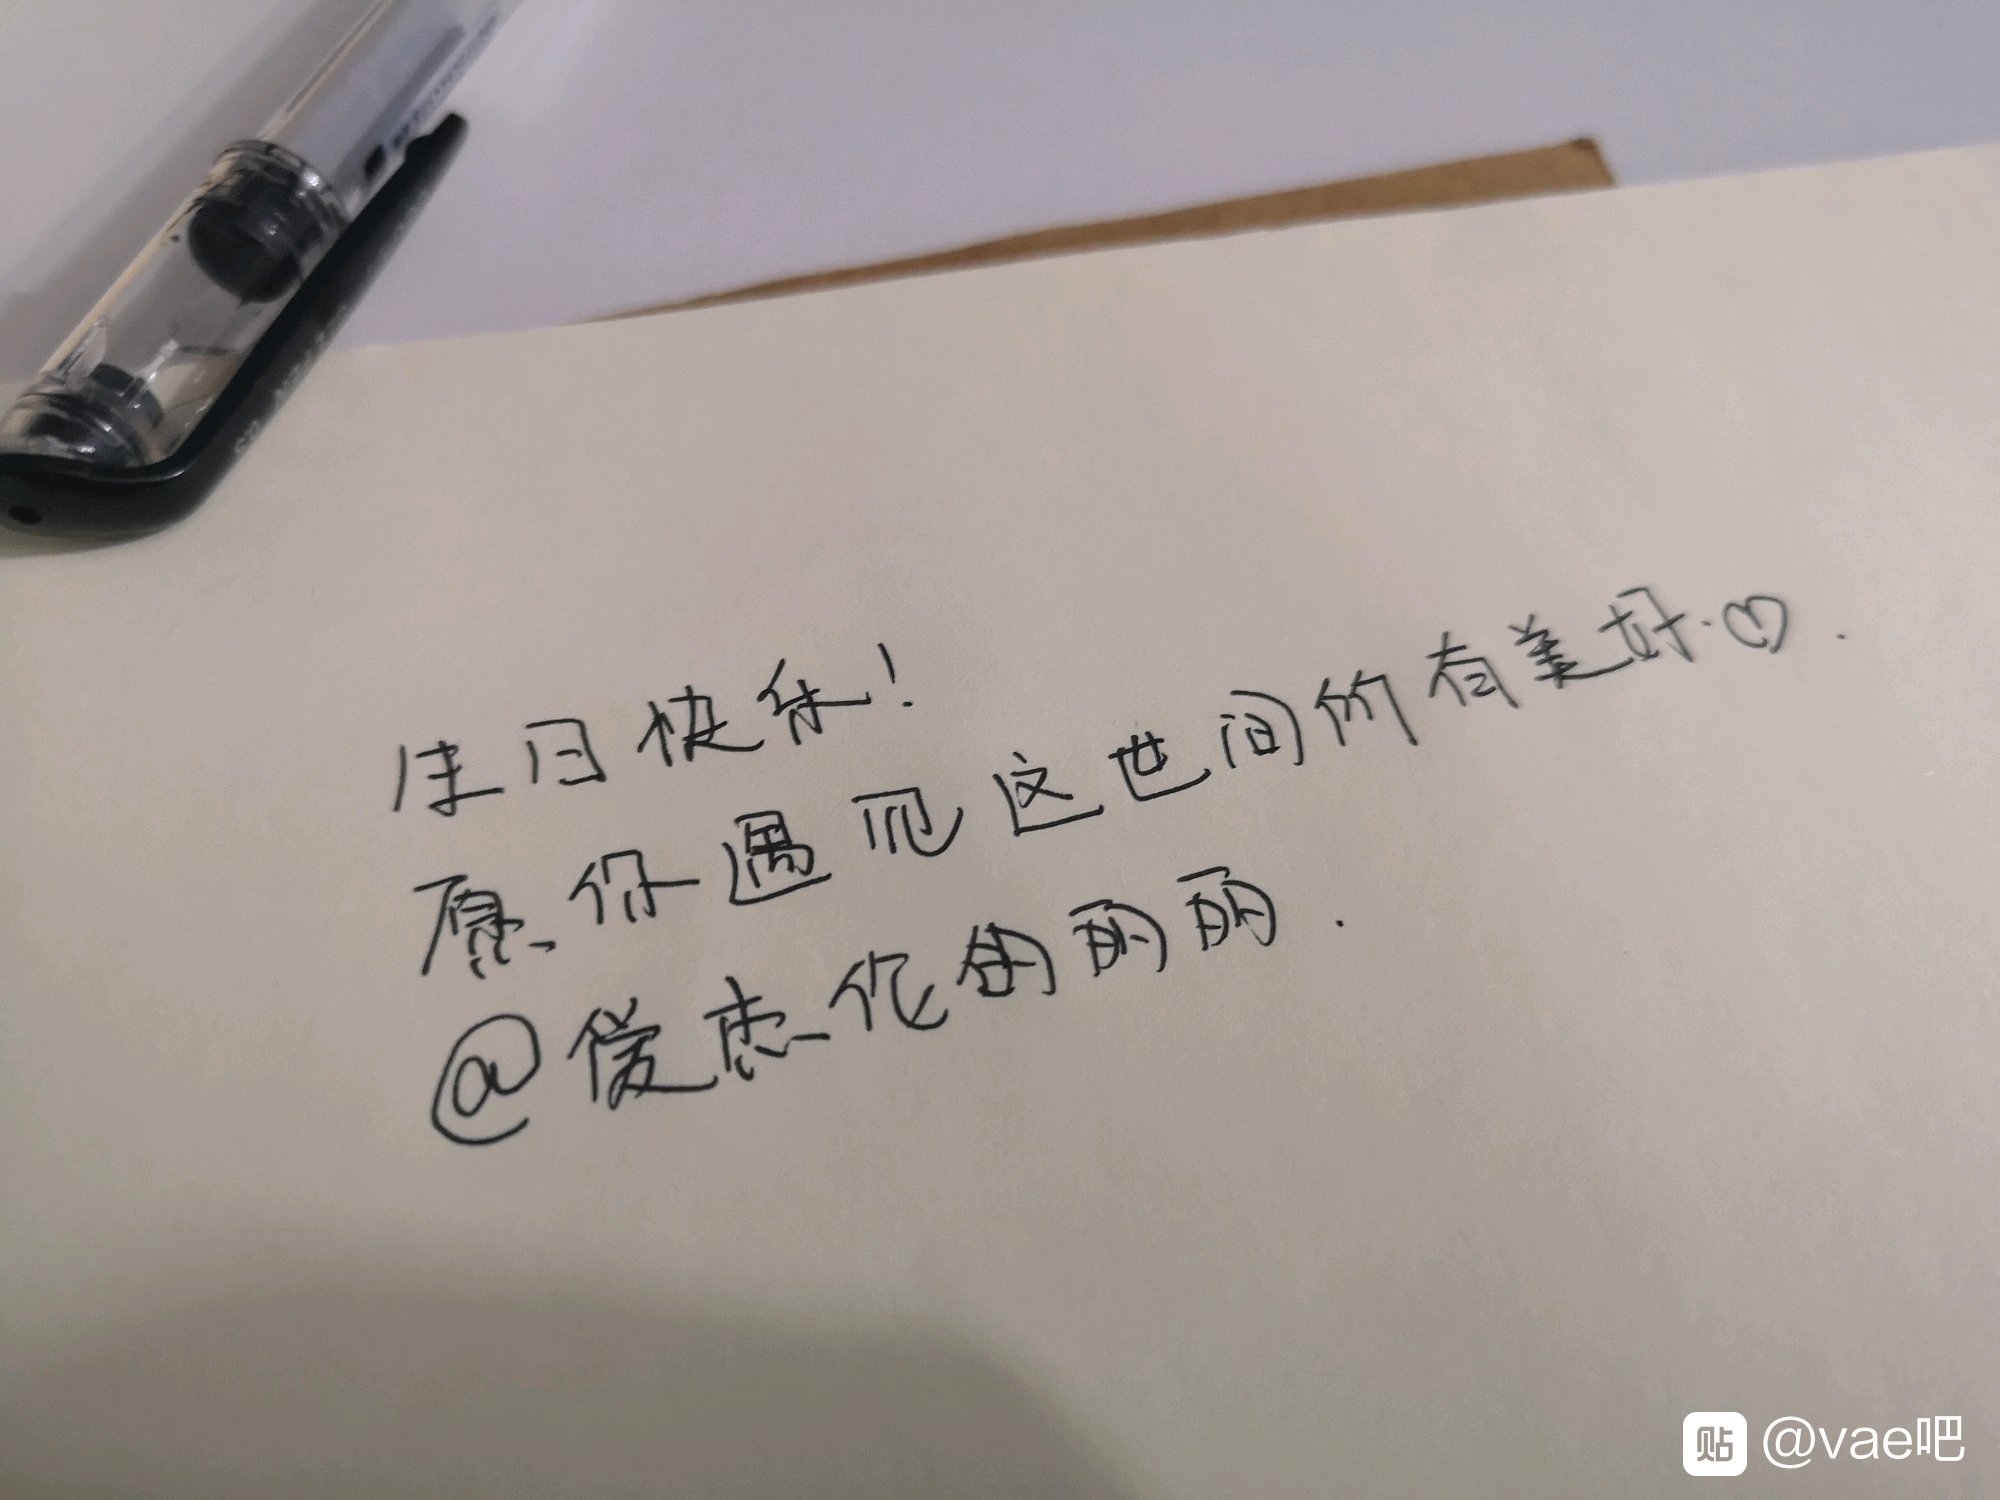 生日快乐!
愿你遇见这世间所有美好.♡.
@爱杰伦的丽丽.
贴 @vae吧